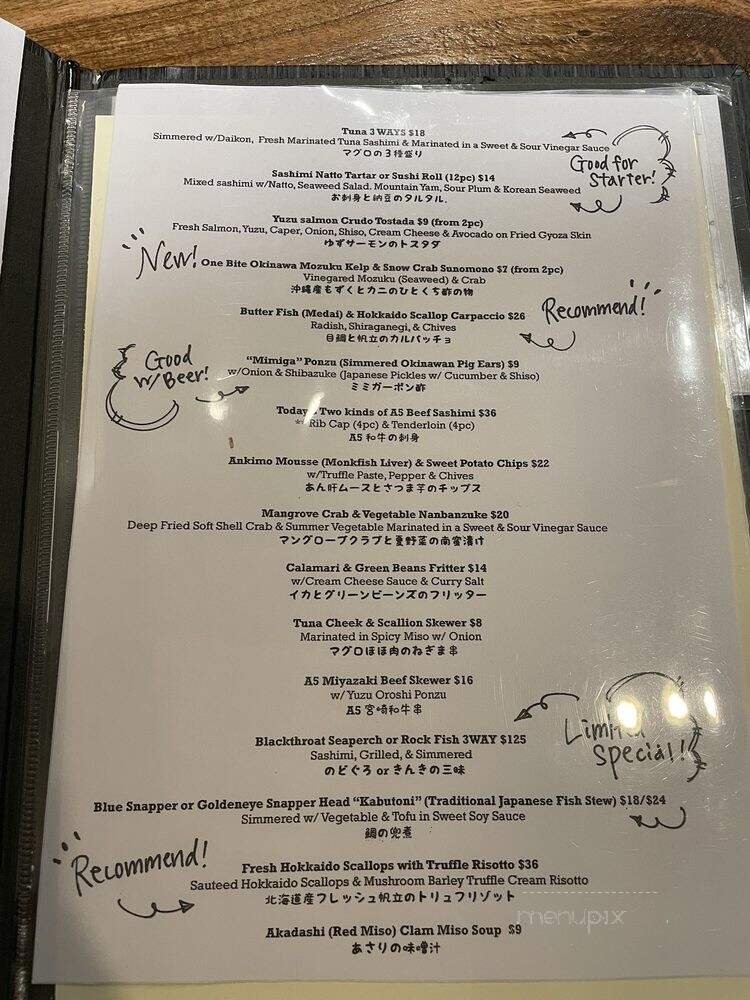 Tuna 3 WAYS $18
Simmered w/Daikon, Fresh Marinated Tuna Sashimi & Marinated in a Sweet & Sour Vinegar Sauce
マグロの3種盛り
Good for
Starter!
Sashimi Natto Tartar or Sushi Roll (12pc) $14
Mixed sashimi w/Natto, Seaweed Salad. Mountain Yam, Sour Plum & Korean Seaweed
お刺身と納豆のタルタル.
Yuzu salmon Crudo Tostada $9 (from 2pc)
Fresh Salmon, Yuzu, Caper, Onion, Shiso, Cream Cheese & Avocado on Fried Gyoza Skin
ゆずサーモンのトスタダ
New!
One Bite Okinawa Mozuku Kelp & Snow Crab Sunomono $7 (from 2pc)
Vinegared Mozuku (Seaweed) & Crab
沖縄産もずくとカニのひとくち酢の物
Recommend!
Butter Fish (Medai) & Hokkaido Scallop Carpaccio $26
Radish, Shiraganegi, & Chives
目鯛と帆立のカルパッチョ
Good
w/Beer!
"Mimiga" Ponzu (Simmered Okinawan Pig Ears) $9
w/Onion & Shibazuke (Japanese Pickles w/ Cucumber & Shiso)
ミミガーポン酢
Today Two kinds of A5 Beef Sashimi $36
Rib Cap (4pc) & Tenderloin (4pc)
A5 和牛の刺身
Ankimo Mousse (Monkfish Liver) & Sweet Potato Chips $22
w/Truffle Paste, Pepper & Chives
あん肝ムースとさつま芋のチップス
Mangrove Crab & Vegetable Nanbanzuke $20
Deep Fried Soft Shell Crab & Summer Vegetable Marinated in a Sweet & Sour Vinegar Sauce
マングローブクラブと夏野菜の南蛮漬け
Calamari & Green Beans Fritter $14
w/Cream Cheese Sauce & Curry Salt
イカとグリーンビーンズのフリッター
Tuna Cheek & Scallion Skewer $8
Marinated in Spicy Miso w/ Onion
マグロほほ肉のねぎま串
A5 Miyazaki Beef Skewer $16
w/Yuzu Oroshi Ponzu
A5 宮崎和牛串
Limited
Special!
Blackthroat Seaperch or Rock Fish 3WAY $125
Sashimi, Grilled, & Simmered
のどぐろ or きんきの三昧
Blue Snapper or Goldeneye Snapper Head "Kabutoni" (Traditional Japanese Fish Stew) $18/$24
Simmered w/ Vegetable & Tofu in Sweet Soy Sauce
鯛の兜煮
Recommend!
Fresh Hokkaido Scallops with Truffle Risotto $36
Sauteed Hokkaido Scallops & Mushroom Barley Truffle Cream Risotto
北海道産フレッシュ帆立のトリュフリゾット
menupix
Akadashi (Red Miso) Clam Miso Soup $9
あさりの味噌汁